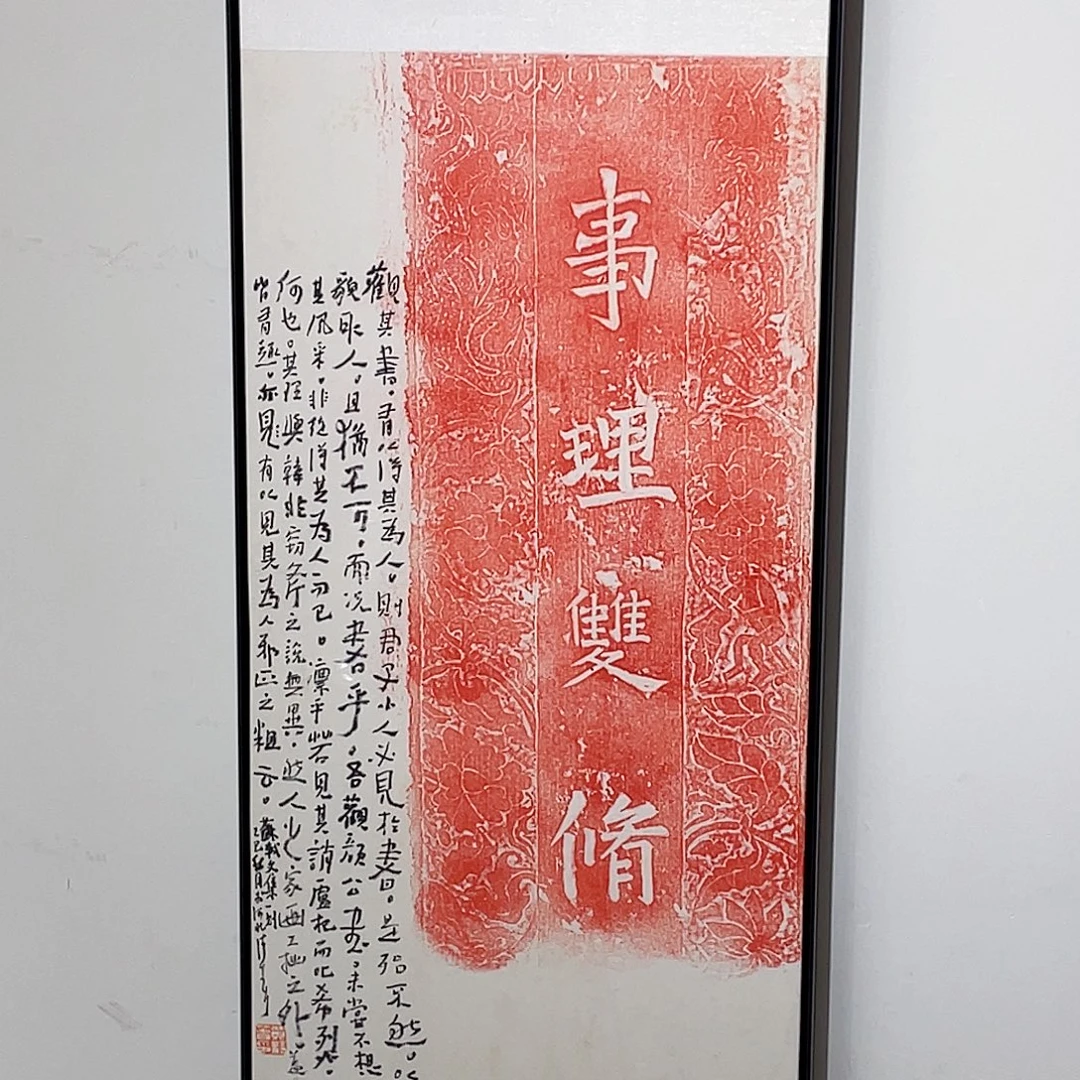 事理雙脩
觀其書。有以得其為人。則君子小人必見於書。是殆不然。以
貌取人。且猶不可。而況書乎。吾觀顏公書。未嘗不想
其風采。非徒得其為人而已。凛乎若見其誚盧杞而叱希烈。
何也。其理與韓非窃斧之說無異。然人之字画工拙之外。蓋
皆有趣。亦見有以見其為人邪正之粗云。
蘇軾文集一則